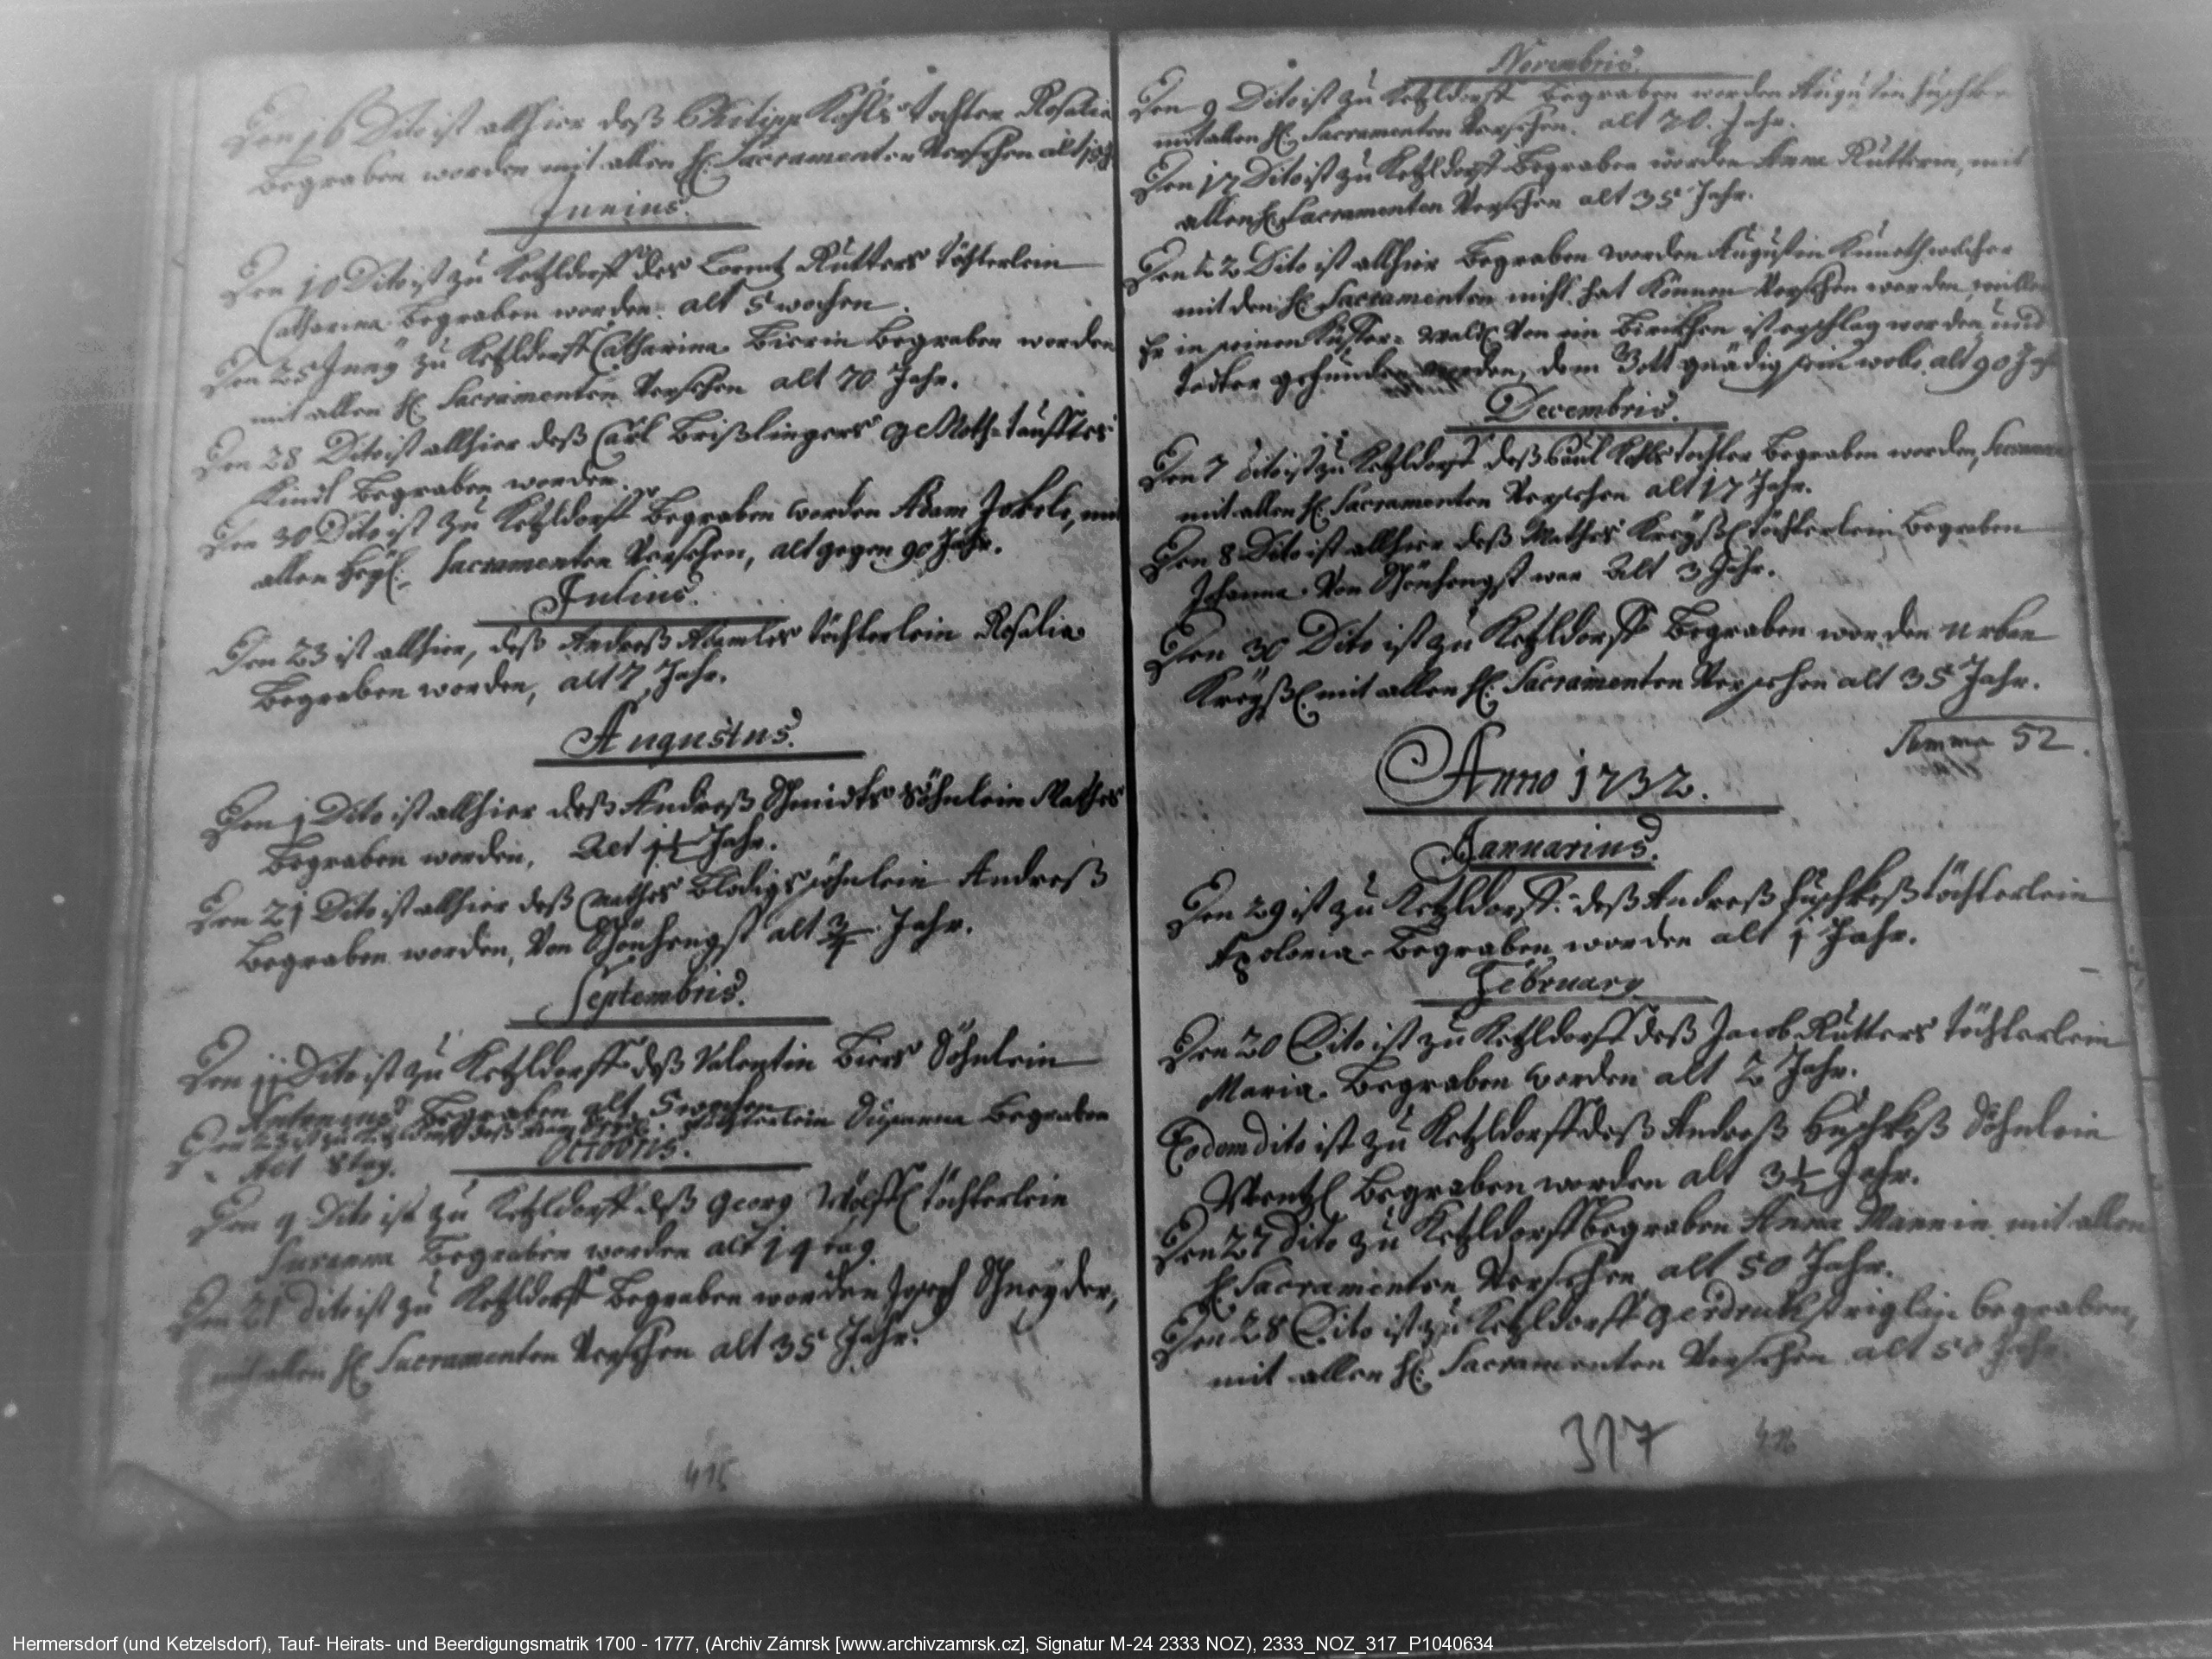 Den 16 Dito ist allhier deß Philipp Kohls tochter Rosalia
Begraben worden mit allen H: Sacramenten Versehen alt
Junius.
Den 10 Dito ist zu Ketzldorff des Lorentz Rutters töchterlein
Catharina Begraben worden. alt 5 wochen.
Den 25 Juny zu Ketzldorff Catharina Bierin Begraben worden
mit allen H: Sacramenten Versehen alt 70 Jahr.
Den 28 Dito ist allhier deß Carl Brißlingers Noth-taufftes
Kindl Begraben worden.
Den 30 Dito ist zu Ketzldorff Begraben worden Adam Jokele, mit
allen Heyl: Sacramenten Versehen, alt gegen 90 Jahr.
Julius.
Den 23 ist allhier, deß Andreß Adamles töchterlein Rosalia
Begraben worden, alt 7 Jahr.
Augustus.
Den 1 Dito ist allhier deß Andreß Schmidts Söhnlein Mathes
Begraben worden, Alt 1½ Jahr.
Den 21 Dito ist allhier deß Mathes Blodigs söhnlein Andreß
Begraben worden, Von Schönhengst alt ¾ Jahr.
Septembris.
Den 11 Dito ist zu Ketzldorff deß Valentin Biers Söhnlein
Antonius Begraben alt. 5 wochen
Den 23 ist zu Ketzldorff deß töchterlein Susanna Begraben
Alt 8 tag.
Octobris.
Den 9 Dito ist zu Ketzldorff deß Georg Wölffl töchterlein
Susanna Begraben worden alt 14 tag
Den 21 dito ist zu Ketzldorff Begraben worden Joseph Schneyder,
mit allen H: Sacramenten Versehen alt 35 Jahr.
415
Novembris.
Den 9 Dito ist zu Ketzldorff Begraben worden Augustin Huschke
mit allen H: Sacramenten Versehen. alt 70. Jahr.
Den 17 Dito ist zu Ketzldorff Begraben worden Anna Rutterin, mit
allen H: Sacramenten Versehen alt 35 Jahr.
Den 22 Dito ist allhier Begraben worden Augustin Kunath welcher
mit den H: Sacramenten nicht hat Können Versehen werden, weillen
Er in seinem Wald Von ein Bircken ist erschlag worden, und
todter gefunden worden, dem Gott gnädig sein wolle, alt 90 Jahr
Decembris.
Den 7 dito ist zu Ketzldorff deß Paul Kohls tochter Begraben worden,
mit allen H: Sacramenten Versehen alt 17 Jahr.
Den 8 Dito ist allhier deß Mathes Kreyßl töchterlein Begraben
Johanna Von Schönhengst war Alt 3 Jahr.
Den 30 Dito ist zu Ketzldorff Begraben worden Urban
Kreyßl mit allen H: Sacramenten Versehen alt 35 Jahr.
Summa 52.
Anno 1732.
Januarius.
Den 29 ist zu Ketzldorff deß Andreß Huschkeß töchterlein
Apolonia Begraben worden alt 1 Jahr.
February
Den 20 Dito ist zu Ketzldorff deß Jacob Rutters töchterlein
Maria Begraben worden alt 2 Jahr.
Eodem dito ist zu Ketzldorff deß Andreß Huschkeß Söhnlein
Wentzl Begraben worden alt 3½ Jahr.
Den 27 dito zu Ketzldorff begraben Anna Mannin mit allen
H: Sacramenten Versehen alt 50 Jahr.
Den 28 Dito ist zu Ketzldorff Gerdruth Striglin begraben,
mit allen H: Sacramenten Versehen alt 50 Jahr.
317
416
Hermersdorf (und Ketzelsdorf), Tauf- Heirats- und Beerdigungsmatrik 1700 - 1777, (Archiv Zámrsk [www.archivzamrsk.cz], Signatur M-24 2333 NOZ), 2333_NOZ_317_P1040634